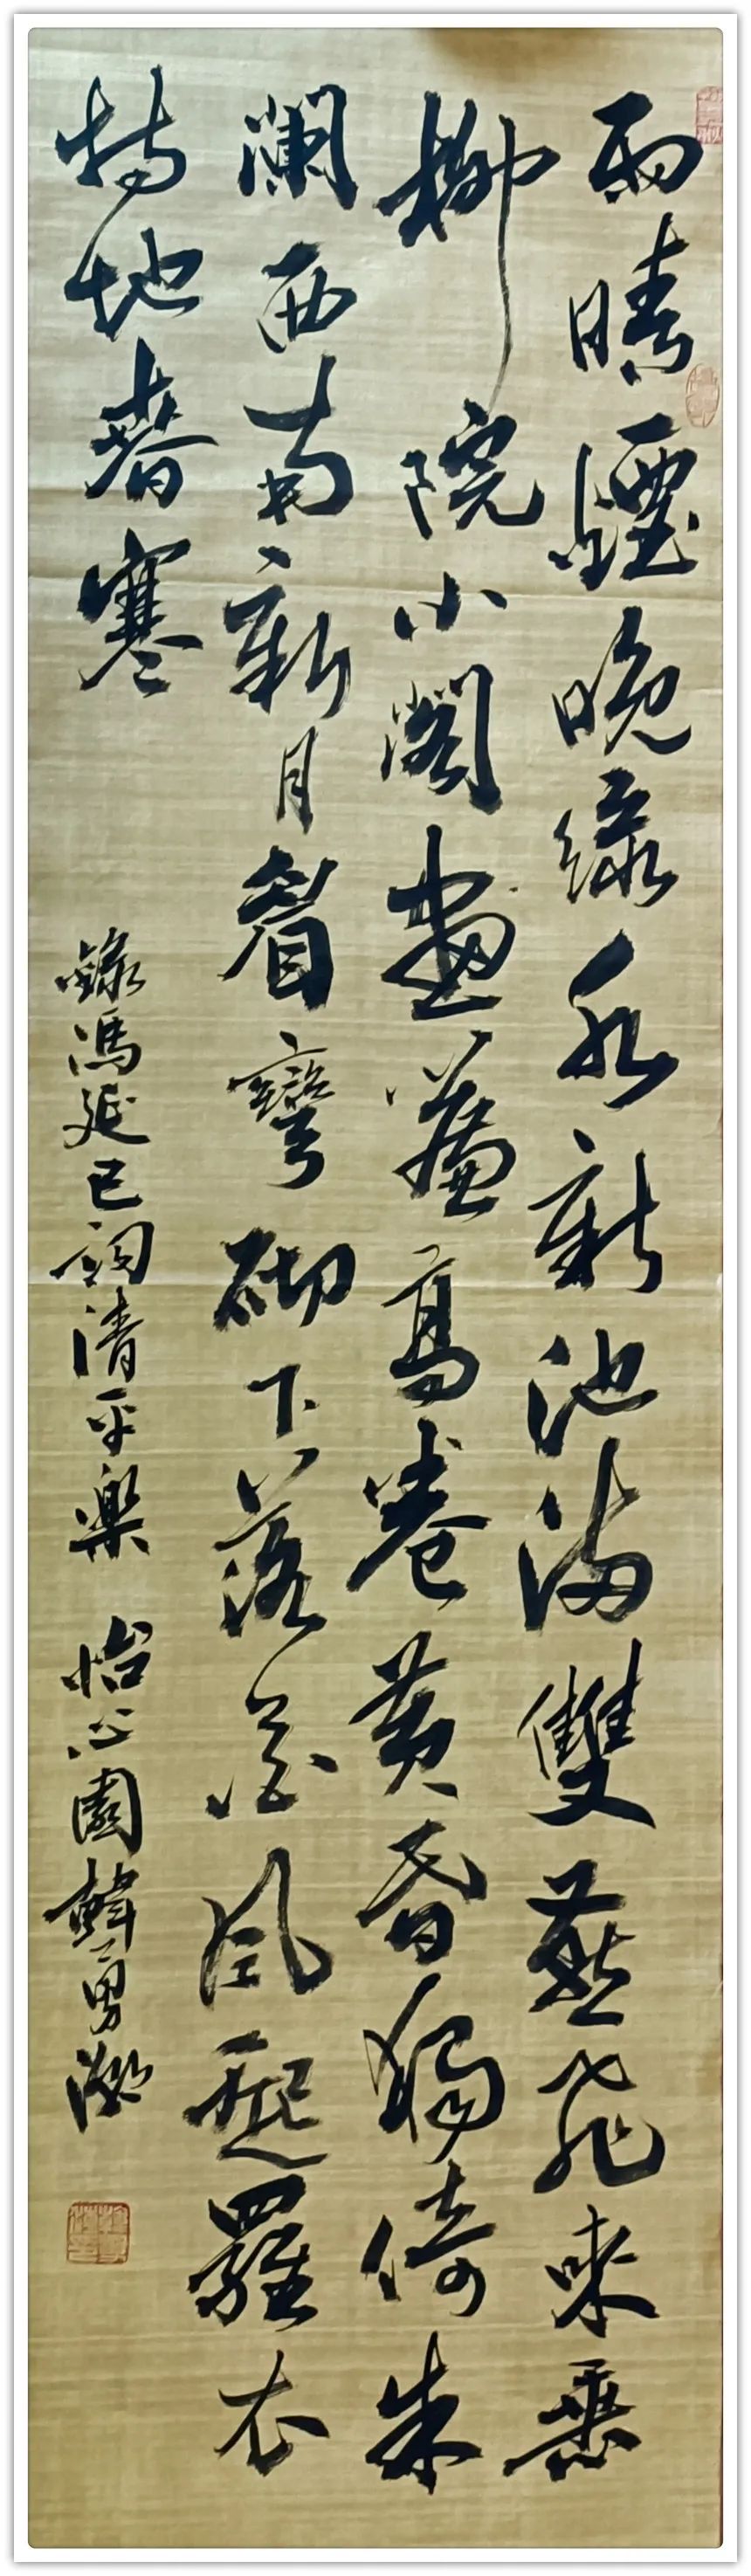 雨晴煙晚綠水新池滿雙燕飛來垂
柳院小閣畫簾高卷黃昏獨倚朱
瀾西南新月眉彎砌下落花風起羅衣
特地春寒
錄馮延巳詞清平樂 怡心園韓勇